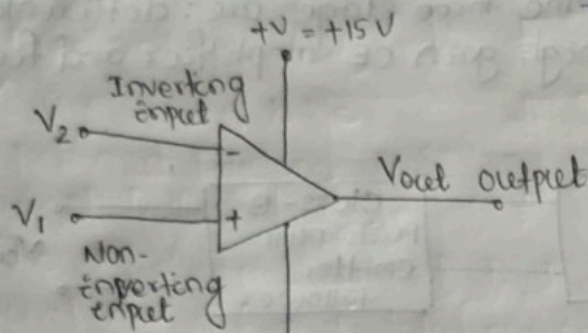 +V = +15V
Inverting
input
V2
-
Vout output
V1
+
Non-
inverting
input